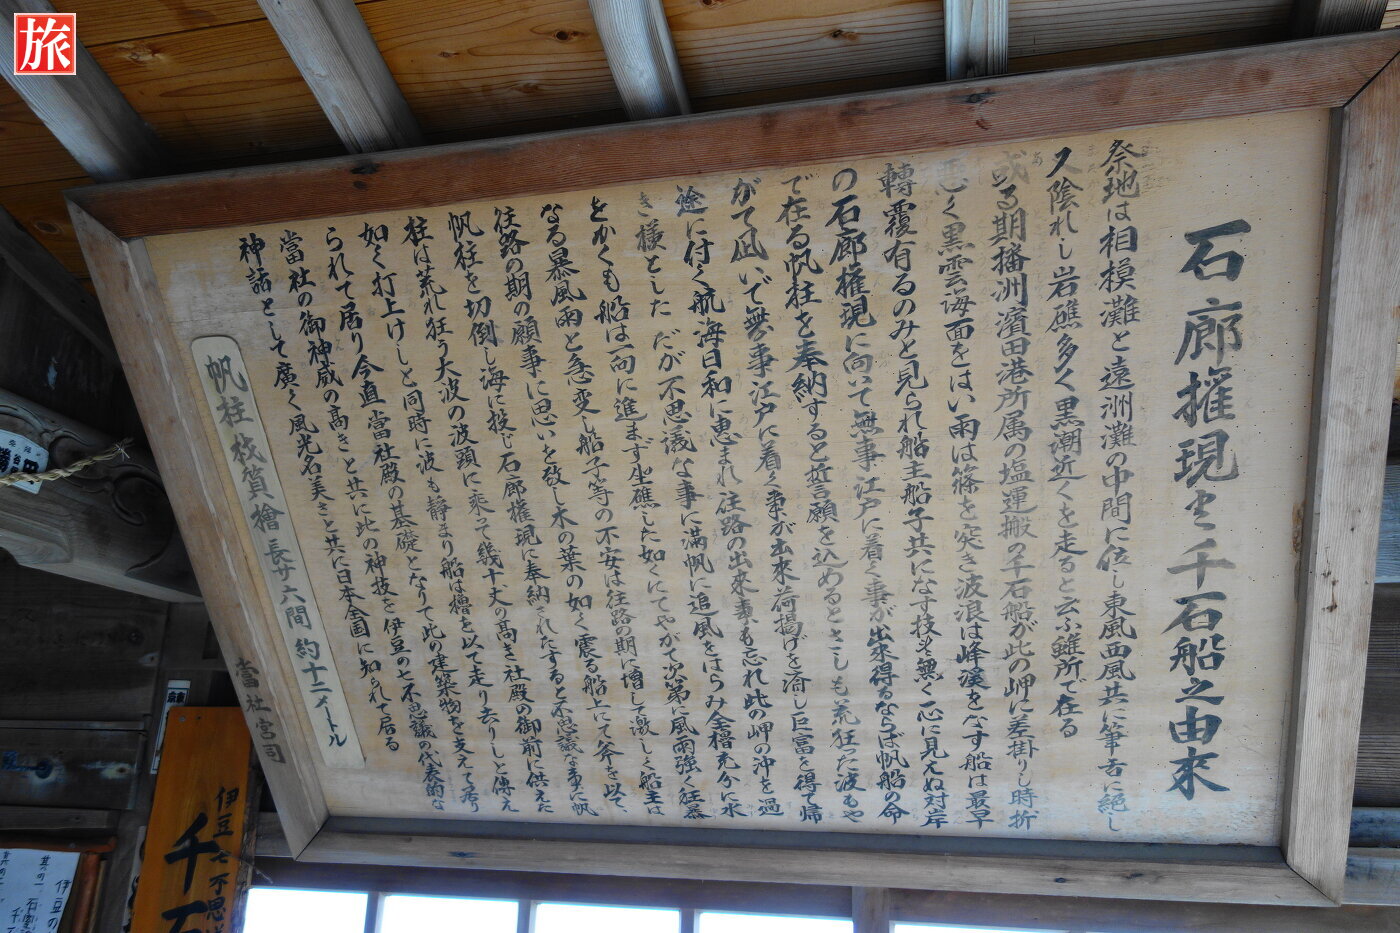 旅
石廊権現と千石船之由来
祭地は相模灘と遠洲灘の中間に位し東風西風共に筆舌に絶し
又陰れし岩礁多く黒潮近くを走ると云ふ難所で在る
或る期播洲濱田港所属の塩運搬の千石船が此の岬に差掛りし時折
悪く黒雲海面をはい雨は篠を突き波浪は峰漢をなす船は最早
轉覆有るのみと見られ船主船子共になす技も無く一心に見えぬ対岸
の石廊権現に向いて無事江戸に着く事が出来得るならば帆船の命
で在る帆柱を奉納すると誓願を込めるとさしも荒狂った波もや
がて凪いで無事江戸に着く事が出来荷揚げを済し巨富を得て帰
途に付く航海日和に恵まれ往路の出来事も忘れ此の岬の沖を過
き様とした だが不思議な事に満帆に追風をはらみ全櫓充分に水
をかくも船は一向に進まず坐礁した如くにてやがて次第に風雨強く狂暴
なる暴風雨と急変し船子等の不安は往路の期に増して激しく船主は
往路の期の願事に思いを致し木の葉の如く震る船上にて斧を以て、
帆柱を切倒し海に投じ石廊権現に奉納されたすると不思議な事に帆
柱は荒れ狂う大波の波頭に乗って幾十丈の高き社殿の御前に供えた
如く打上けしと同時に波も静まり船は櫓を以て走り去りしと傳え
られて居り今直當社殿の基礎となりて此の建築物を支えて居り
當社の御神威の高きと共に此の神技を伊豆の七不思議の代表的な
神話として廣く風光名美さと共に日本全国に知られて居る
帆柱 材質 檜 長サ六間 約十二メートル
當社宮司
伊豆七不思
千石
伊豆の
其の一、石
其の二、